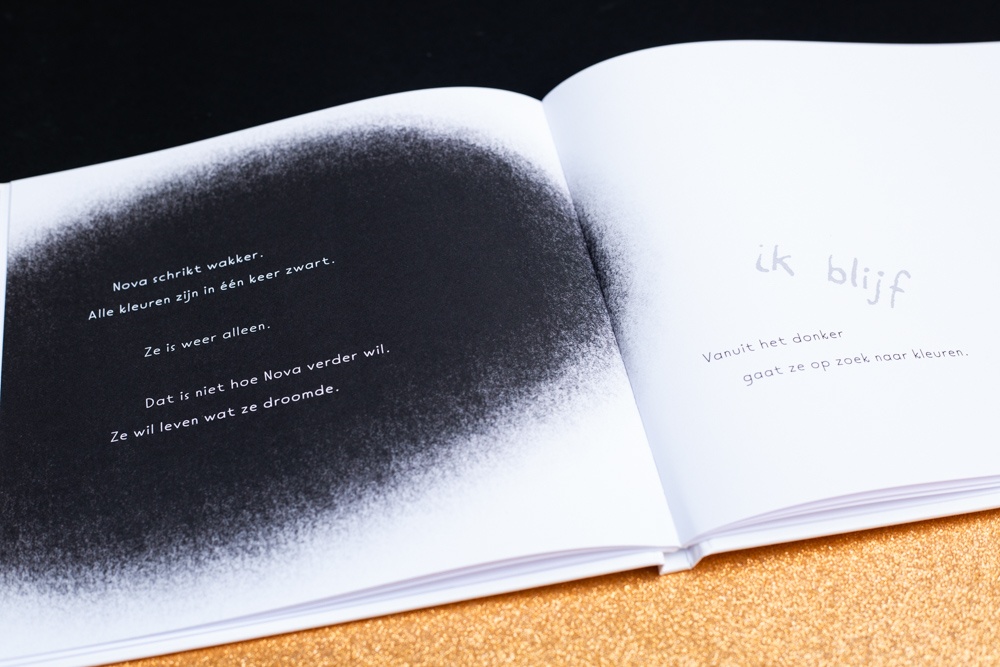 Nova schrikt wakker.
Alle kleuren zijn in één keer zwart.
Ze is weer alleen.
Dat is niet hoe Nova verder wil.
Ze wil leven wat ze droomde.
ik blijf
Vanuit het donker
gaat ze op zoek naar kleuren.